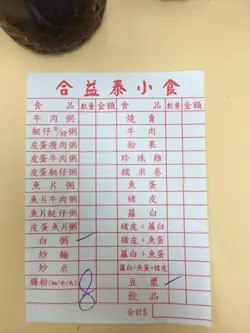 合益泰小食
食品 數量 金額 食品 數量 金額
牛肉粥 燒賣
艇仔粥 牛肉
皮蛋瘦肉粥 粉果
皮蛋牛肉粥 珍珠雞
皮蛋艇仔粥 糯米卷
魚片粥 魚蛋
魚片牛肉粥 豬皮
魚片艇仔粥 蘿白
皮蛋魚片粥 豬皮+蘿白
白粥 豬皮+魚蛋
炒麵 蘿白+魚蛋
炒米 蘿白+魚蛋+豬皮
腸粉 8 豆漿
飲品
合計$